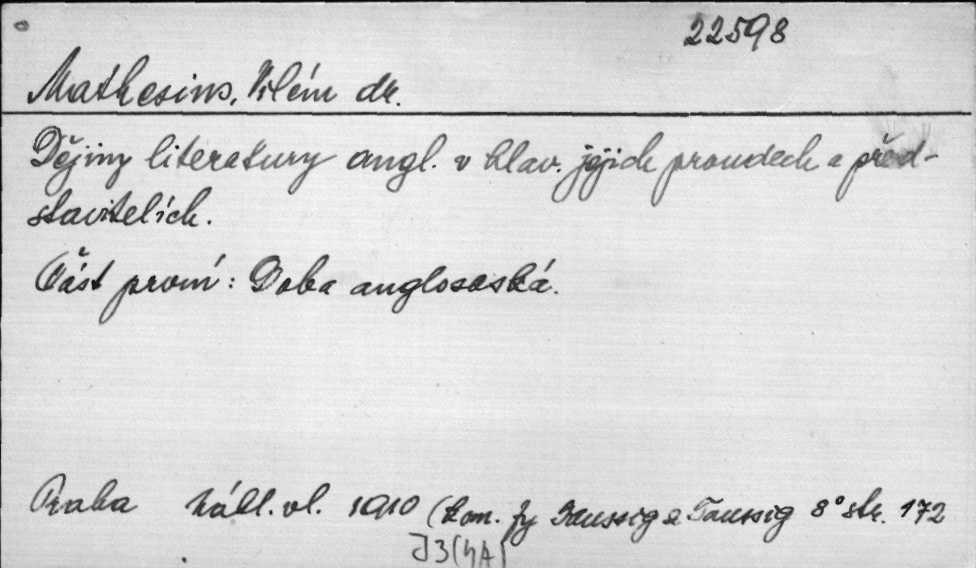 22598
Mathesius, Vilém dr.
Dějiny literatury angl. v hlav. jejich proudech a před-
stavitelích.
Část první: Doba anglosaská.
Praha nákl. vl. 1910 (kom. fy Taussig & Taussig 8° str. 172
J3(4A)